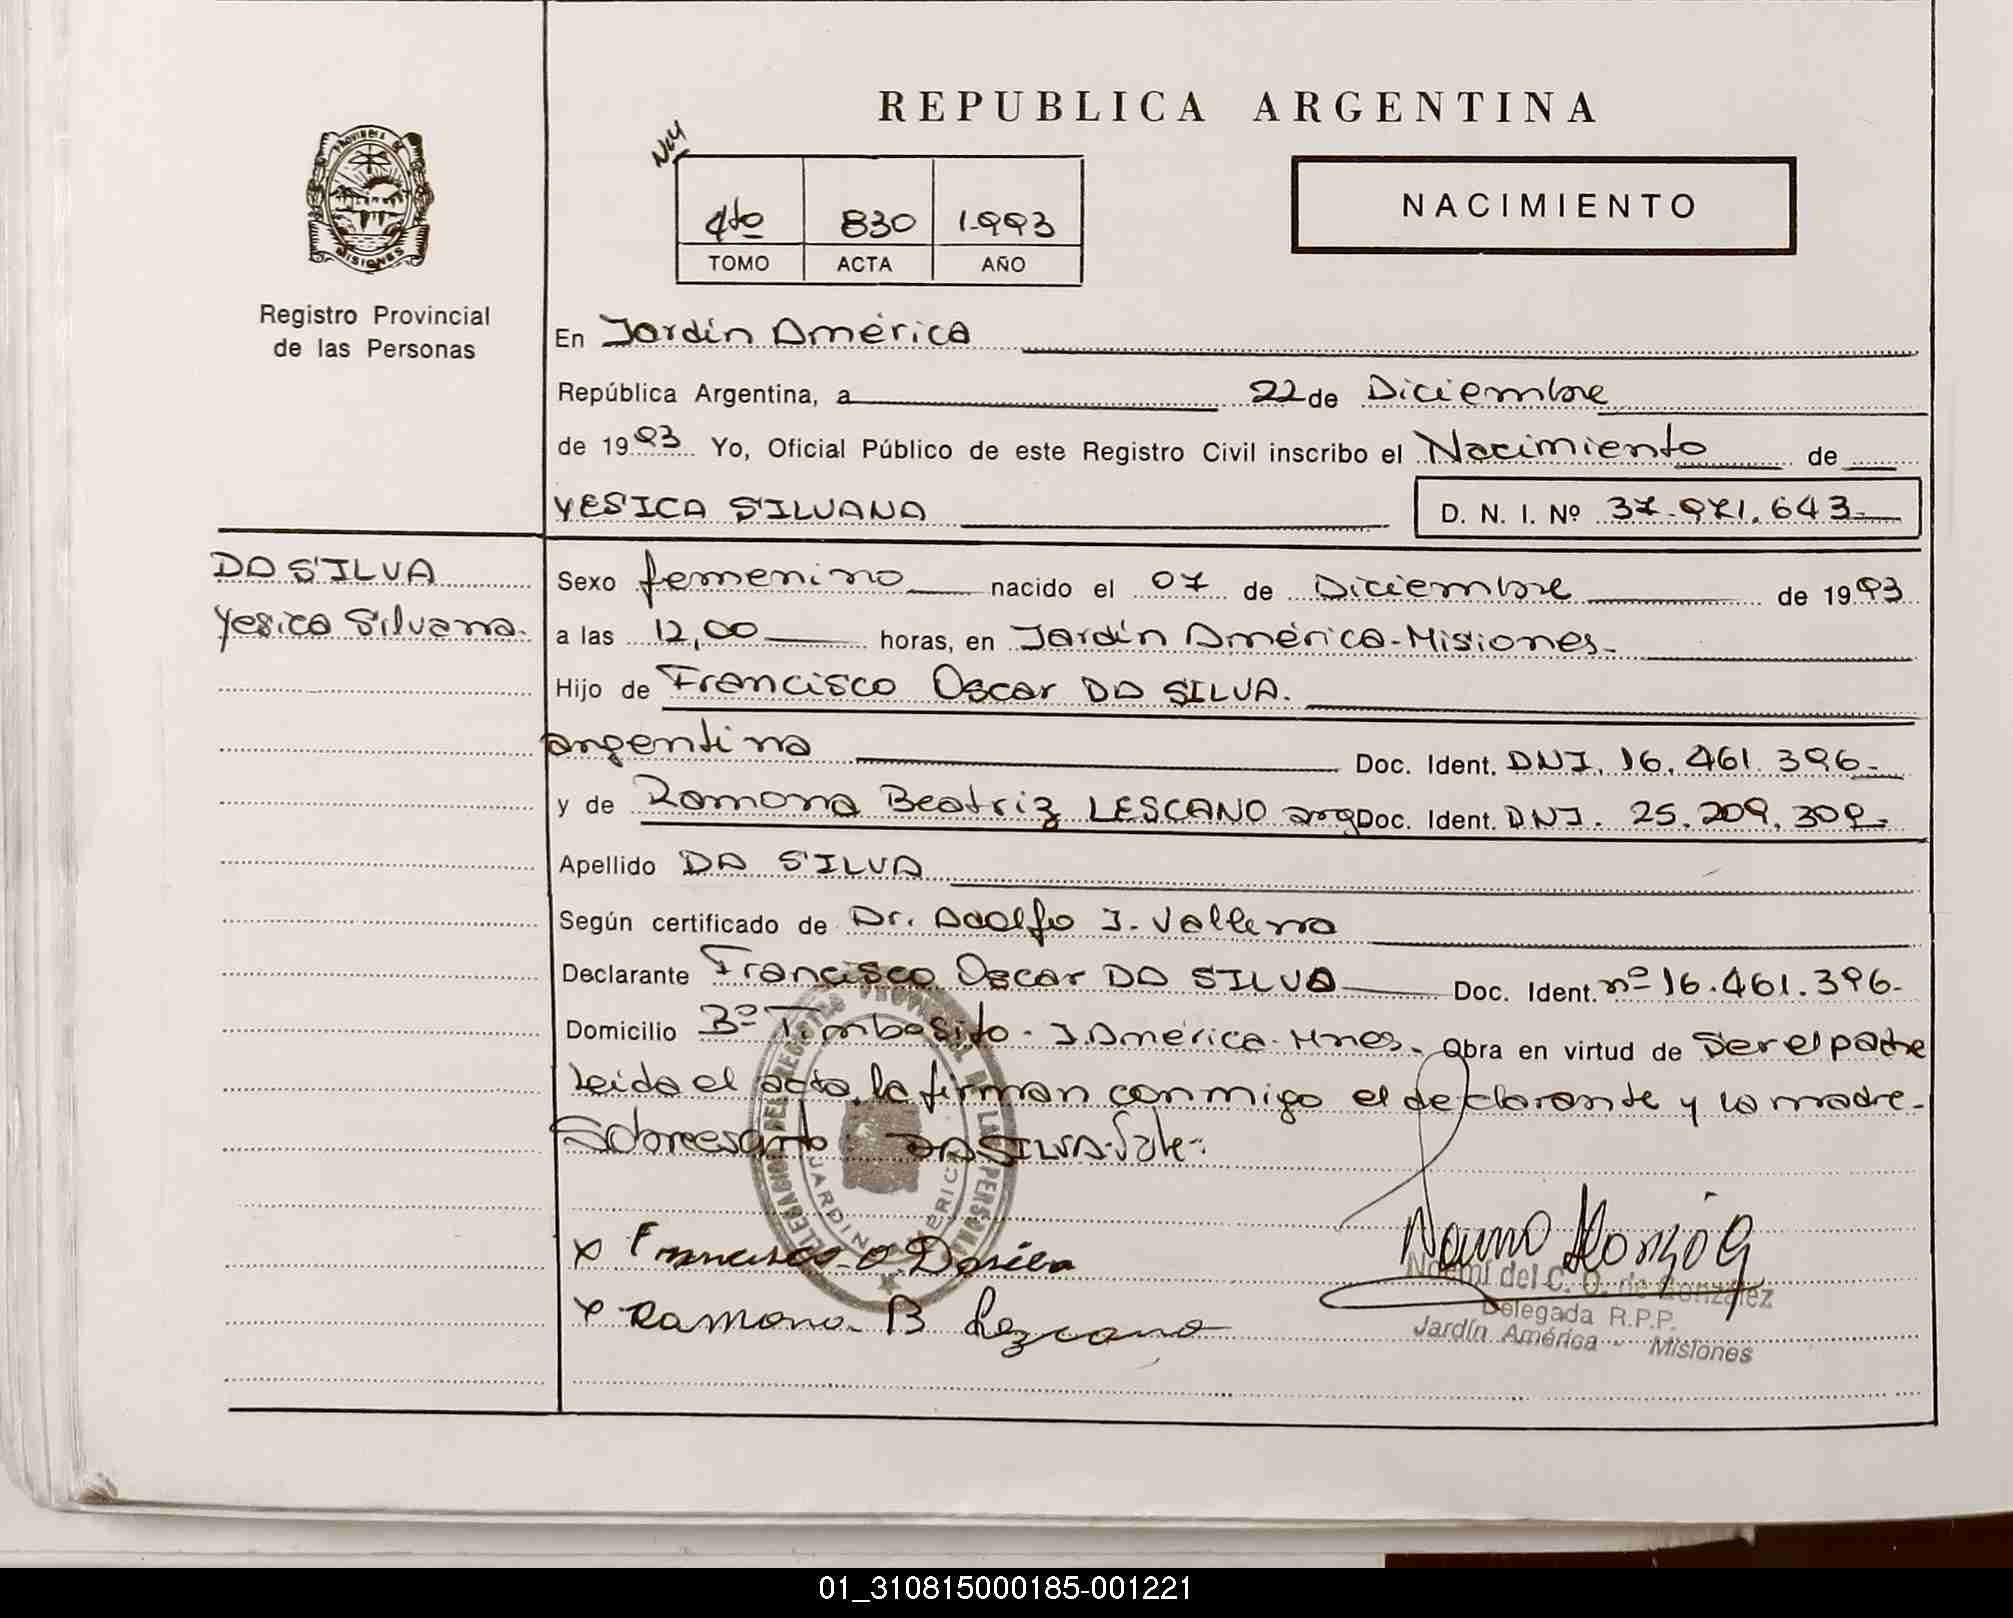 REPUBLICA ARGENTINA
PROVINCIA DE
MISIONES
4to 830 1.993
TOMO ACTA AÑO
NACIMIENTO
Registro Provincial
de las Personas
En Jardín América
República Argentina, a 22 de Diciembre
de 1993 Yo, Oficial Público de este Registro Civil inscribo el Nacimiento de
YESICA SILVANA D. N. I. Nº 37.971.643-
DA SILVA
Yesica Silvana.
Sexo femenino nacido el 07 de Diciembre de 1993
a las 12,00 horas, en Jardín América-Misiones-
Hijo de Francisco Oscar DA SILVA.
argentina Doc. Ident. DNI. 16.461.396-
y de Ramona Beatriz LESCANO arg Doc. Ident. DNI. 25.209.309-
Apellido DA SILVA
Según certificado de Dr. Adolfo J.
Declarante Francisco Oscar DA SILVA Doc. Ident. nº 16.461.396-
Domicilio Bº Timbosito - J. América - Mnes. Obra en virtud de Ser el padre
Leida el acta, la firman conmigo el declarante y la madre-
DA SILVA. Vale-
DELEGACION DEL REGISTRO PROVINCIAL DE LAS PERSONAS
JARDIN AMERICA
x Francisco O. Dasilva
x Ramona B Lezcano
Noemí del C. O. de González
Delegada R.P.P.
Jardín América - Misiones
01_310815000185-001221